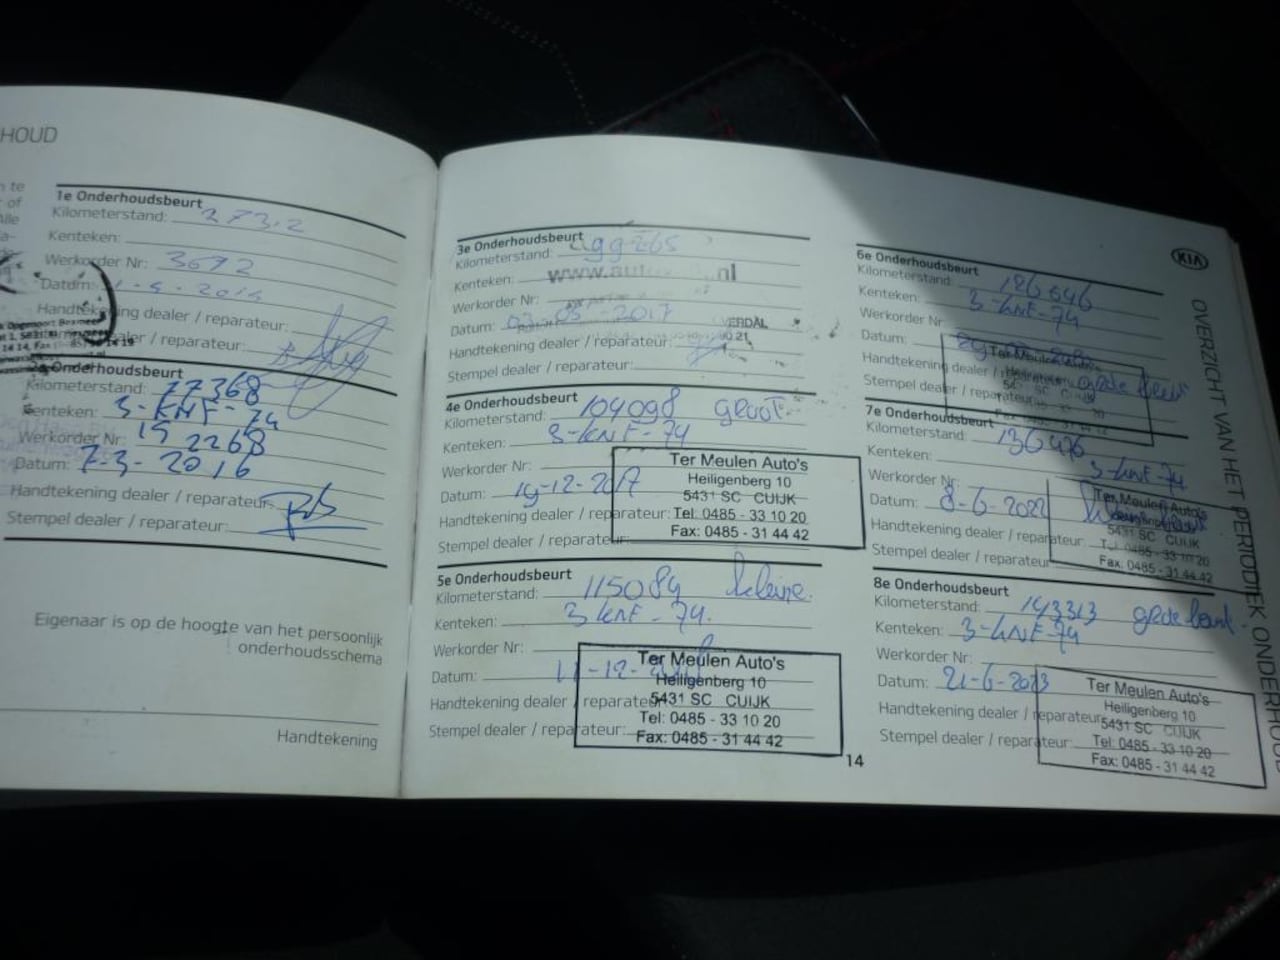 HOUD
1e Onderhoudsbeurt
Kilometerstand: 273.2
Kenteken:
Werkorder Nr: 3692
Datum:
Handtekening dealer / reparateur:
dealer / reparateur:
Onderhoudsbeurt
Kilometerstand: 77368
Kenteken: 3-KNF-74
Werkorder Nr: 152268
Datum: 7-3-2016
Handtekening dealer / reparateur:
Stempel dealer / reparateur:
Eigenaar is op de hoogte van het persoonlijk
onderhoudsschema
Handtekening
3e Onderhoudsbeurt
Kilometerstand:
Kenteken:
Werkorder Nr:
Datum: 03-05-2017
Handtekening dealer / reparateur:
Stempel dealer / reparateur:
4e Onderhoudsbeurt
Kilometerstand: 104098 groot
Kenteken: 3-KNF-74
Werkorder Nr:
Datum: 19-12-2017
Handtekening dealer / reparateur:
Stempel dealer / reparateur:
Ter Meulen Auto's
Heiligenberg 10
5431 SC CUIJK
Tel: 0485 - 33 10 20
Fax: 0485 - 31 44 42
5e Onderhoudsbeurt
Kilometerstand: 115084 kleine
Kenteken: 3 KNF-74
Werkorder Nr:
Datum: 11-12-
Handtekening dealer / reparateur:
Stempel dealer / reparateur:
Ter Meulen Auto's
Heiligenberg 10
5431 SC CUIJK
Tel: 0485 - 33 10 20
Fax: 0485 - 31 44 42
14
KIA
6e Onderhoudsbeurt
Kilometerstand: 126646
Kenteken: 3-KNF-74
Werkorder Nr
Datum:
Handtekening dealer / reparateur
Stempel dealer / reparateur
Ter Meulen
7e Onderhoudsbeurt
Kilometerstand: 136476
Kenteken: 3-KNF-74
Werkorder Nr:
Datum: 8-6-2022
Handtekening dealer / reparateur:
Stempel dealer / reparateur
Ter Meulen Auto's
5431 SC CUIJK
Tel: 0485 - 33 10 20
Fax: 0485 - 31 44 42
8e Onderhoudsbeurt
Kilometerstand: 143313 grote beurt
Kenteken: 3-KNF-74
Werkorder Nr:
Datum: 21-6-2023
Handtekening dealer / reparateur
Stempel dealer / reparateur:
Ter Meulen Auto's
Heiligenberg 10
5431 SC CUIJK
Tel: 0485 - 33 10 20
Fax: 0485 - 31 44 42
OVERZICHT VAN HET PERIODIEK ONDERHOUD